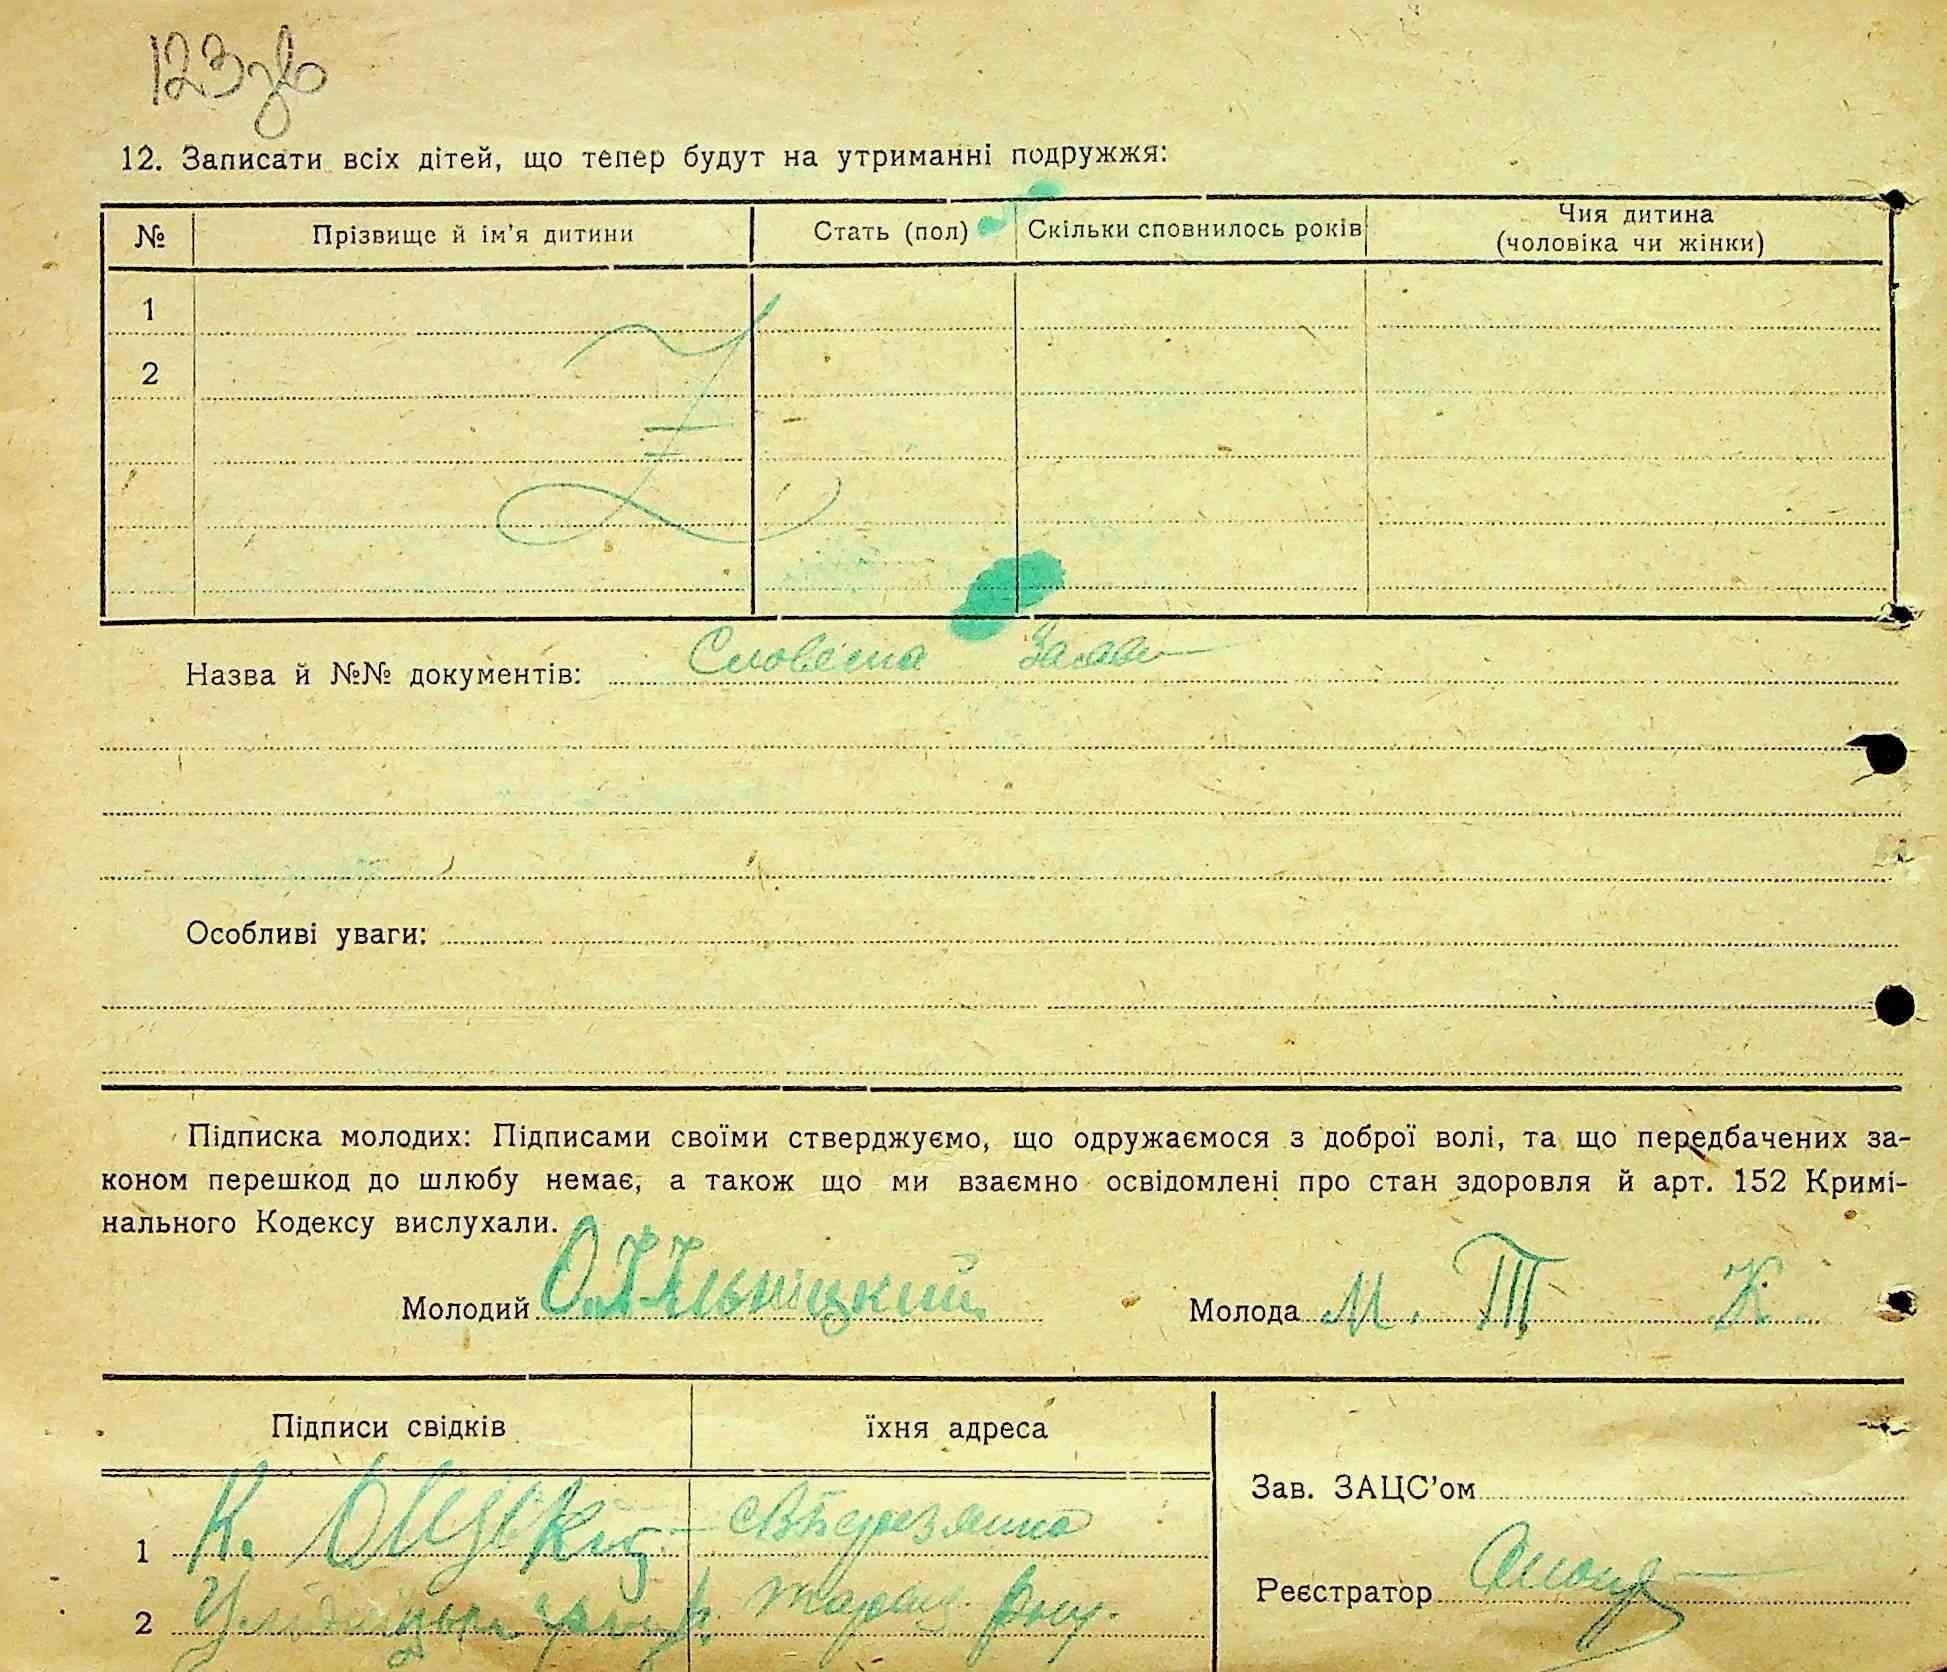 123зв
12. Записати всіх дітей, що тепер будут на утриманні подружжя:
№ Прізвище й ім'я дитини Стать (пол) Скільки сповнилось років Чия дитина (чоловіка чи жінки)
1
2
Назва й №№ документів: Словесна Заява
Особливі уваги:
Підписка молодих: Підписами своїми стверджуємо, що одружаємося з доброї волі, та що передбачених за-
коном перешкод до шлюбу немає, а також що ми взаємно освідомлені про стан здоровля й арт. 152 Кримі-
нального Кодексу вислухали.
Молодий Молода М. Т К.
Підписи свідків їхня адреса
Зав. ЗАЦС'ом
1 К.
Реєстратор
2